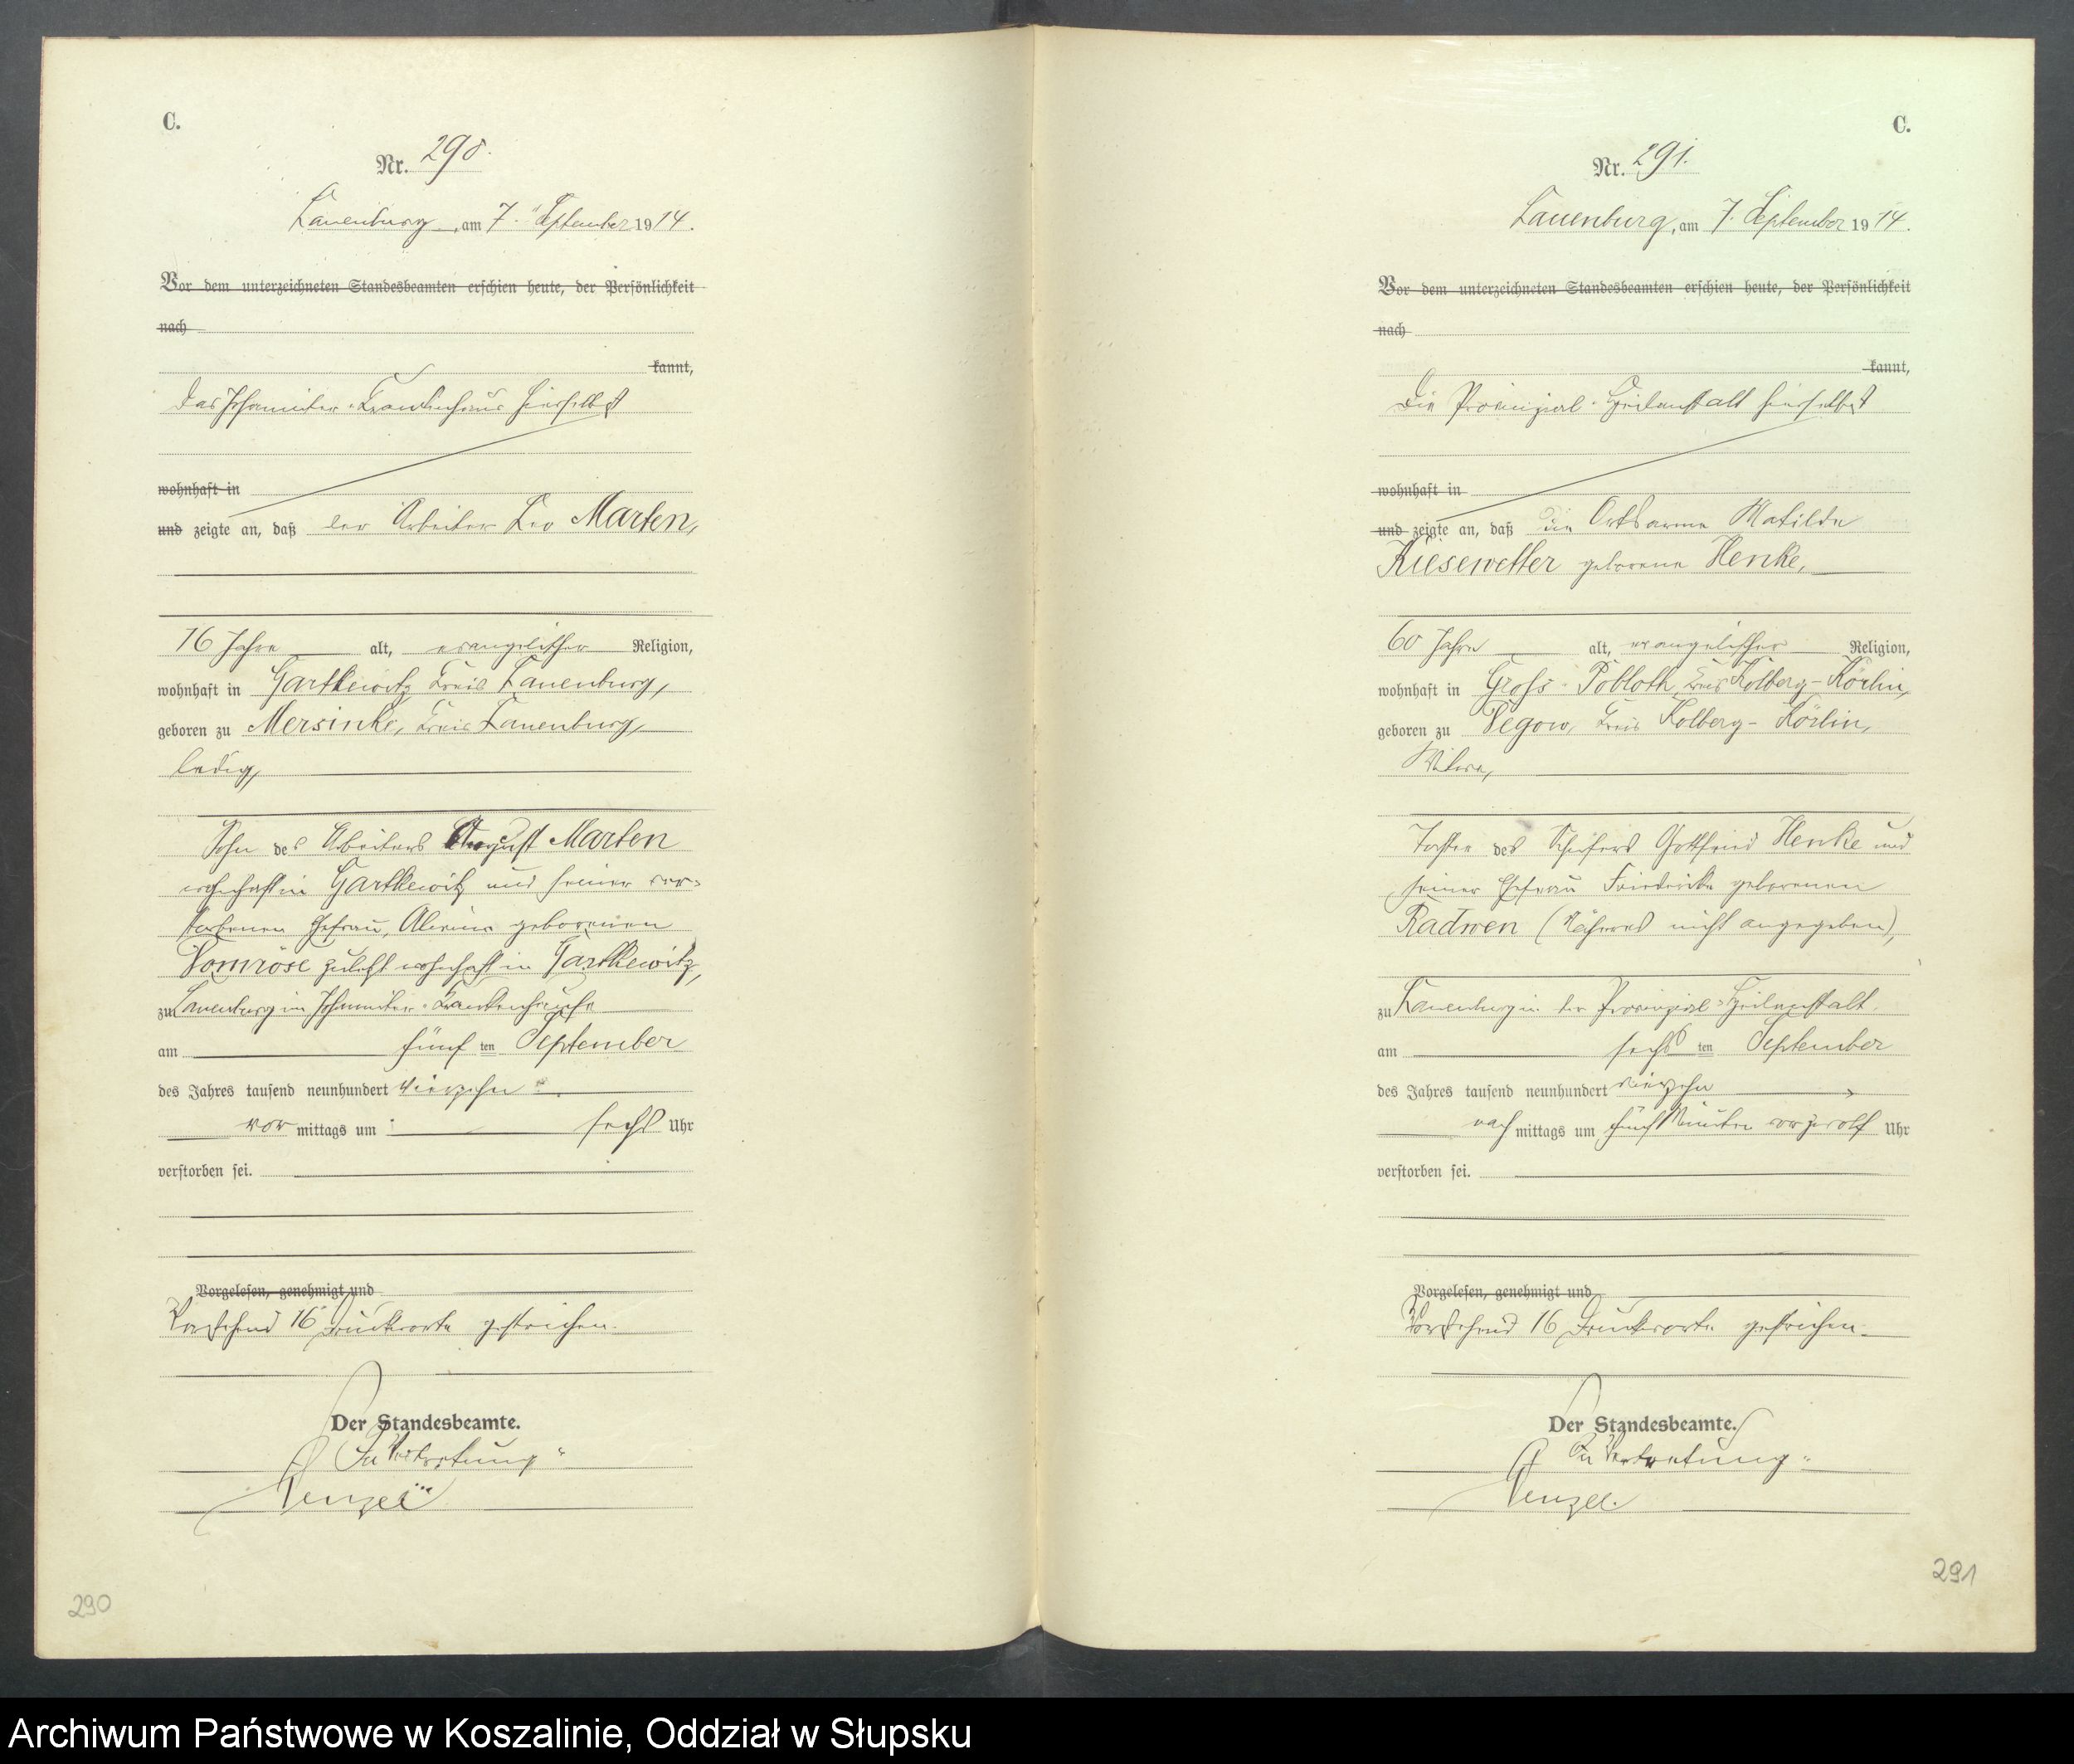 C.
Nr. 290.
Lauenburg, am 7. September 1914.
Vor dem unterzeichneten Standesbeamten erschien heute, der Persönlichkeit
nach
kannt,
das Johanniter-Krankenhaus hierselbst
wohnhaft in
und zeigte an, daß der Arbeiter Leo Marten,
16 Jahre alt, evangelischer Religion,
wohnhaft in Gartkewitz Kreis Lauenburg,
geboren zu Mersinke, Kreis Lauenburg,
ledig,
Sohn des Arbeiters August Marten
wohnhaft in Gartkewitz und seiner ver-
storbenen Ehefrau, geborenen
Vomröse zuletzt wohnhaft in Gartkewitz,
zu Lauenburg im Johanniter-Krankenhause
am fünf ten September
des Jahres tausend neunhundert vierzehn
vor mittags um sechs Uhr
verstorben sei.
Vorgelesen, genehmigt und
Vorstehend 16 Druckworte gestrichen.
Der Standesbeamte.
In Vertretung
290
C.
Nr. 291.
Lauenburg, am 7. September 1914.
Vor dem unterzeichneten Standesbeamten erschien heute, der Persönlichkeit
nach
kannt,
Die Provinzial-Heilanstalt hierselbst
wohnhaft in
und zeigte an, daß die Ortsarme Matilde
Kiesewetter geborene Henke,
60 Jahre alt, evangelischer Religion,
wohnhaft in Gross-Pobloth, Kreis Kolberg-Körlin,
geboren zu Degow, Kreis Kolberg-Körlin,
Witwe,
Tochter des Schäfers Gottfried Henke und
seiner Ehefrau Friedericke geborenen
Radwen (Näheres nicht angegeben),
zu Lauenburg in der Provinzial-Heilanstalt
am sechs ten September
des Jahres tausend neunhundert vierzehn
nach mittags um fünf Minuten vor zwölf Uhr
verstorben sei.
Vorgelesen, genehmigt und
Vorstehend 16 Druckworte gestrichen.
Der Standesbeamte.
In Vertretung
291
Archiwum Państwowe w Koszalinie, Oddział w Słupsku